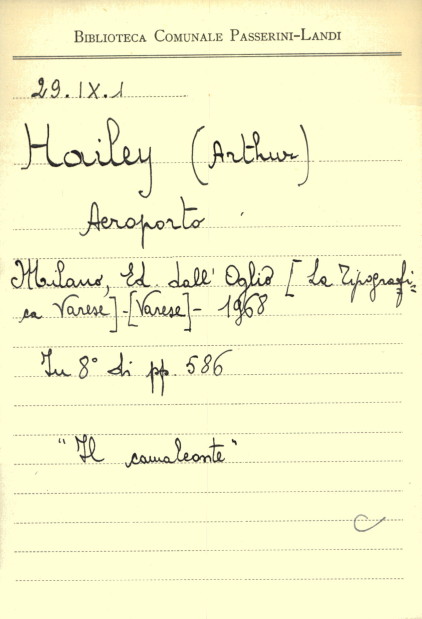 BIBLIOTECA COMUNALE PASSERINI-LANDI
29.IX.1
Hailey (Arthur)
Aeroporto
Milano, Ed. dall'Oglio [La Tipografi=
ca Varese]-[Varese]- 1968
In 8° di pp. 586
"Il camaleonte"